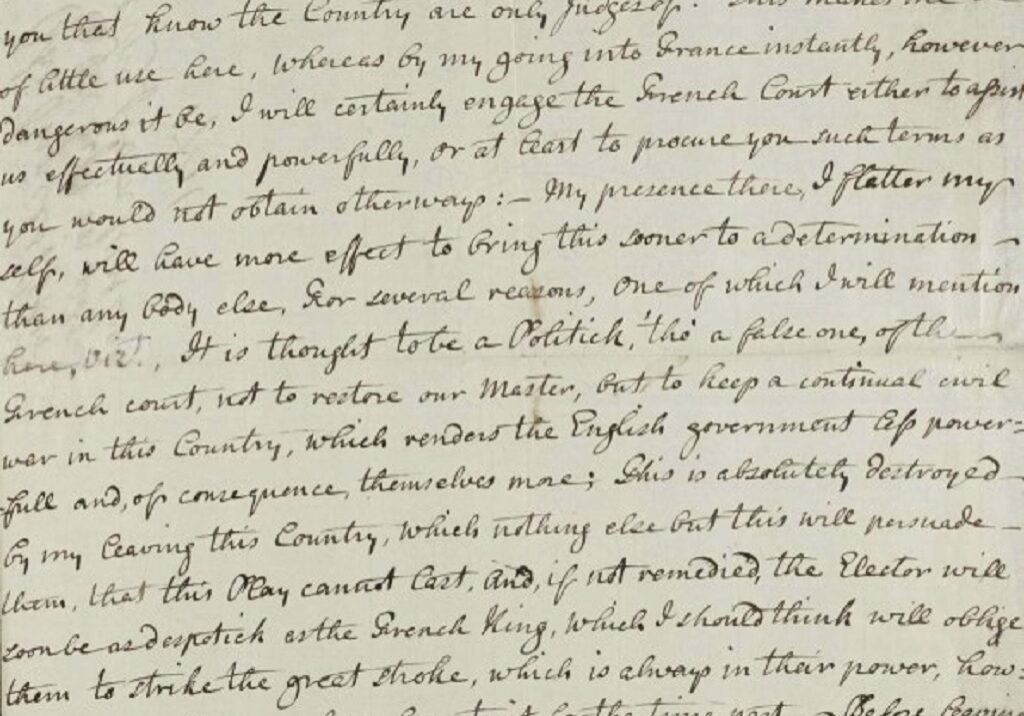 you that know the Country are only Judges of. This makes me
of little use here, whereas by my going into France instantly, however
dangerous it be, I will certainly engage the French Court either to assist
us effectually and powerfully, or at least to procure you such terms as
you would not obtain otherways :- My presence there, I flatter my
self, will have more effect to bring this sooner to a determination -
than any body else, For several reasons, one of which I will mention
here, Vizt., It is thought to be a Politick, tho' a false one, of the -
French court, not to restore our Master, but to keep a continual civil
war in this Country, which renders the English government less power=
full and, of consequence, themselves more; This is absolutely destroyed -
by my leaving this Country, which nothing else but this will persuade -
them, that this Play cannot last, and, if not remedied, the Elector will
soon be as despotick as the French King, which I should think will oblige
them to strike the great stroke, which is always in their power, how=
for the time past - Before leaving